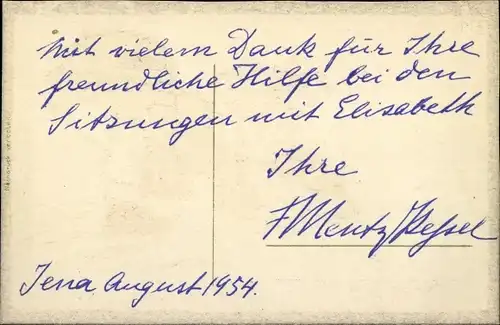 Mit vielem Dank für Ihre
freundliche Hilfe bei den
Sitzungen mit Elisabeth
Ihre
Jena August 1954.